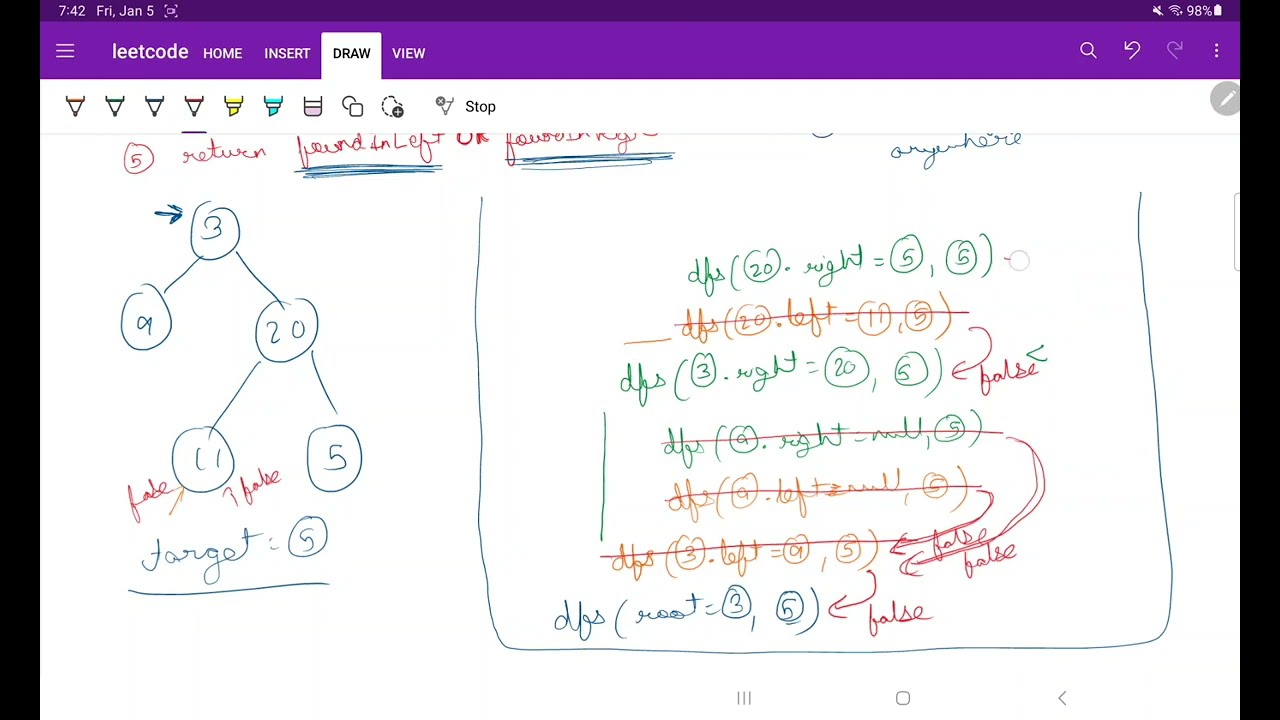 7:42 Fri, Jan 5 98%
leetcode HOME INSERT DRAW VIEW
Stop
5 return foundInLeft OR foundInRight
anywhere
3
9 20
11 5
false false
target = 5
dfs(20.right = 5, 5)
dfs(20.left = 11, 5)
dfs(3.right = 20, 5) false
dfs(9.right = null, 5)
dfs(9.left = null, 5)
dfs(3.left = 9, 5) false false
dfs(root = 3, 5) false